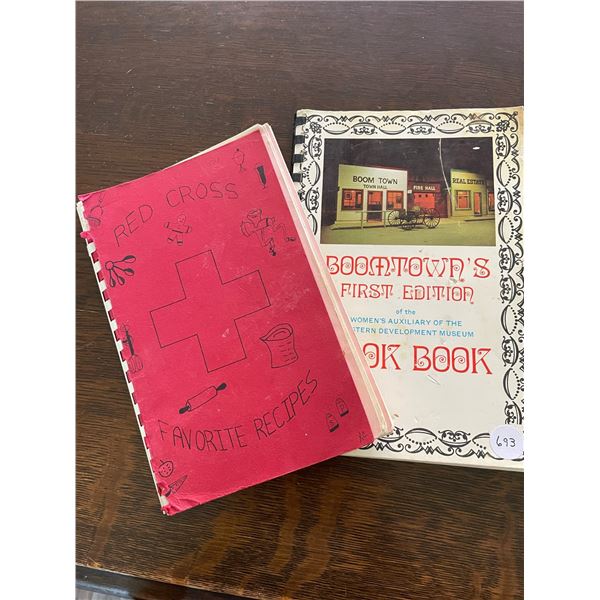 RED CROSS
FAVORITE RECIPES
S P
BOOM TOWN
TOWN HALL
FIRE HALL
REAL ESTATE
BOOMTOWN'S
FIRST EDITION
of the
WOMEN'S AUXILIARY OF THE
STERN DEVELOPMENT MUSEUM
OOK BOOK
693